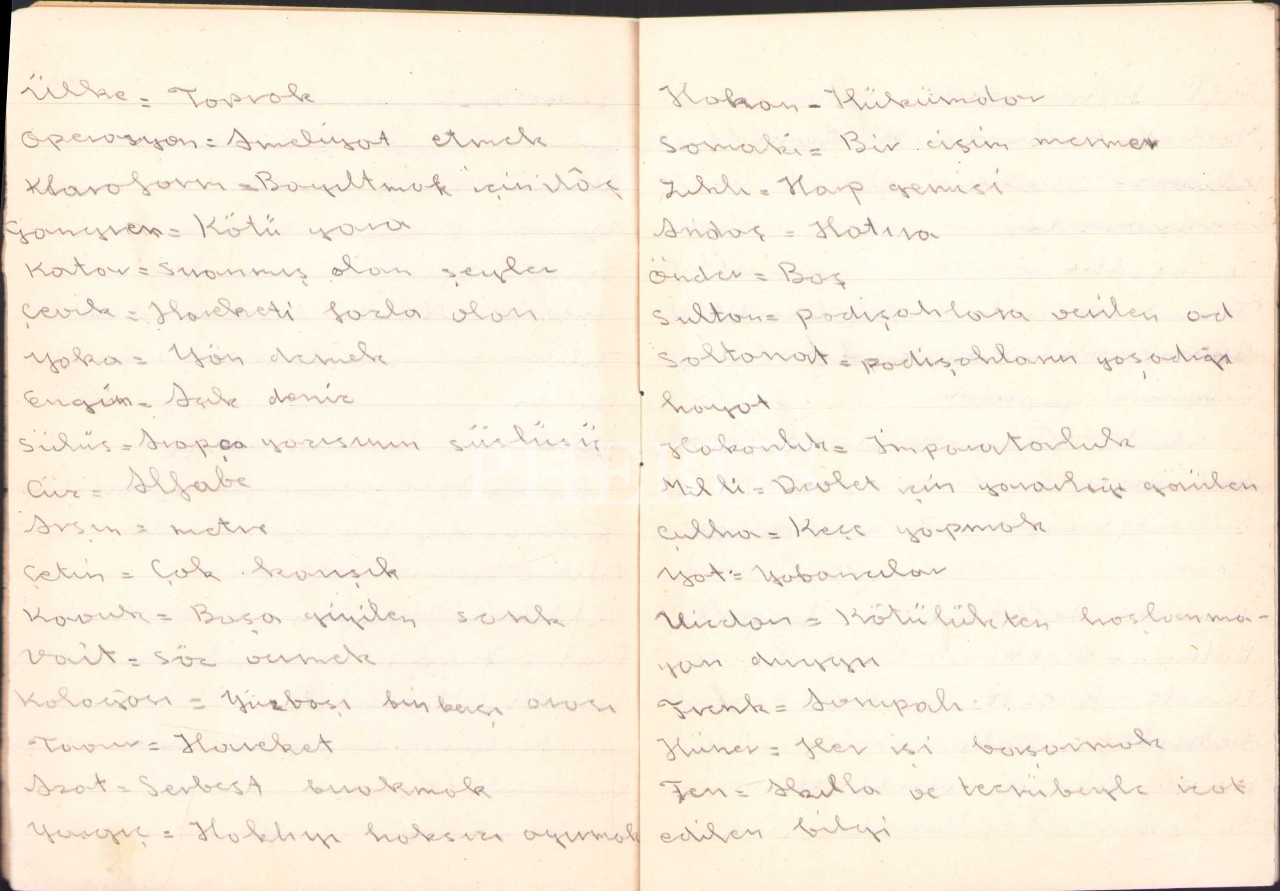 Ülke = Toprak
Operasyon = Ameliyat etmek
Klaroform = Bayıltmak için ilâç
Gangren = Kötü yara
Katar = Sıralanmış olan şeyler
Çevik = Hareketi fazla olan
Yaka = Yön demek
Engin = Açık deniz
Sülüs = Arapça yazısının süslüsü
Cüz = Alfabe
Arşın = metre
Çetin = Çok karışık
Kavuk = Başa giyilen sarık
Vait = Söz vermek
Kolağası = Yüzbaşı binbaşı arası
Tavır = Hareket
Azat = Serbest bırakmak
Yargıç = Haklıyı haksızı ayırmak
Hakan = Hükümdar
Somaki = Bir cişim mermer
Zıhlı = Harp gemisi
Andaç = Hatıra
Önder = Baş
Sultan = padişahlara verilen ad
Saltanat = padişahların yaşadığı
hayat
Hakanlık = İmparatorluk
Milli = Devlet için yararlığı görülen
Çulha = Keçe yapmak
Yat = Yabancılar
Vicdan = Kötülükten hoşlanma-
yan duygu
Frenk = Avrupalı
Hüner = Her işi başarmak
Fen = Akılla ve tecrübeyle icat
edilen bilgi